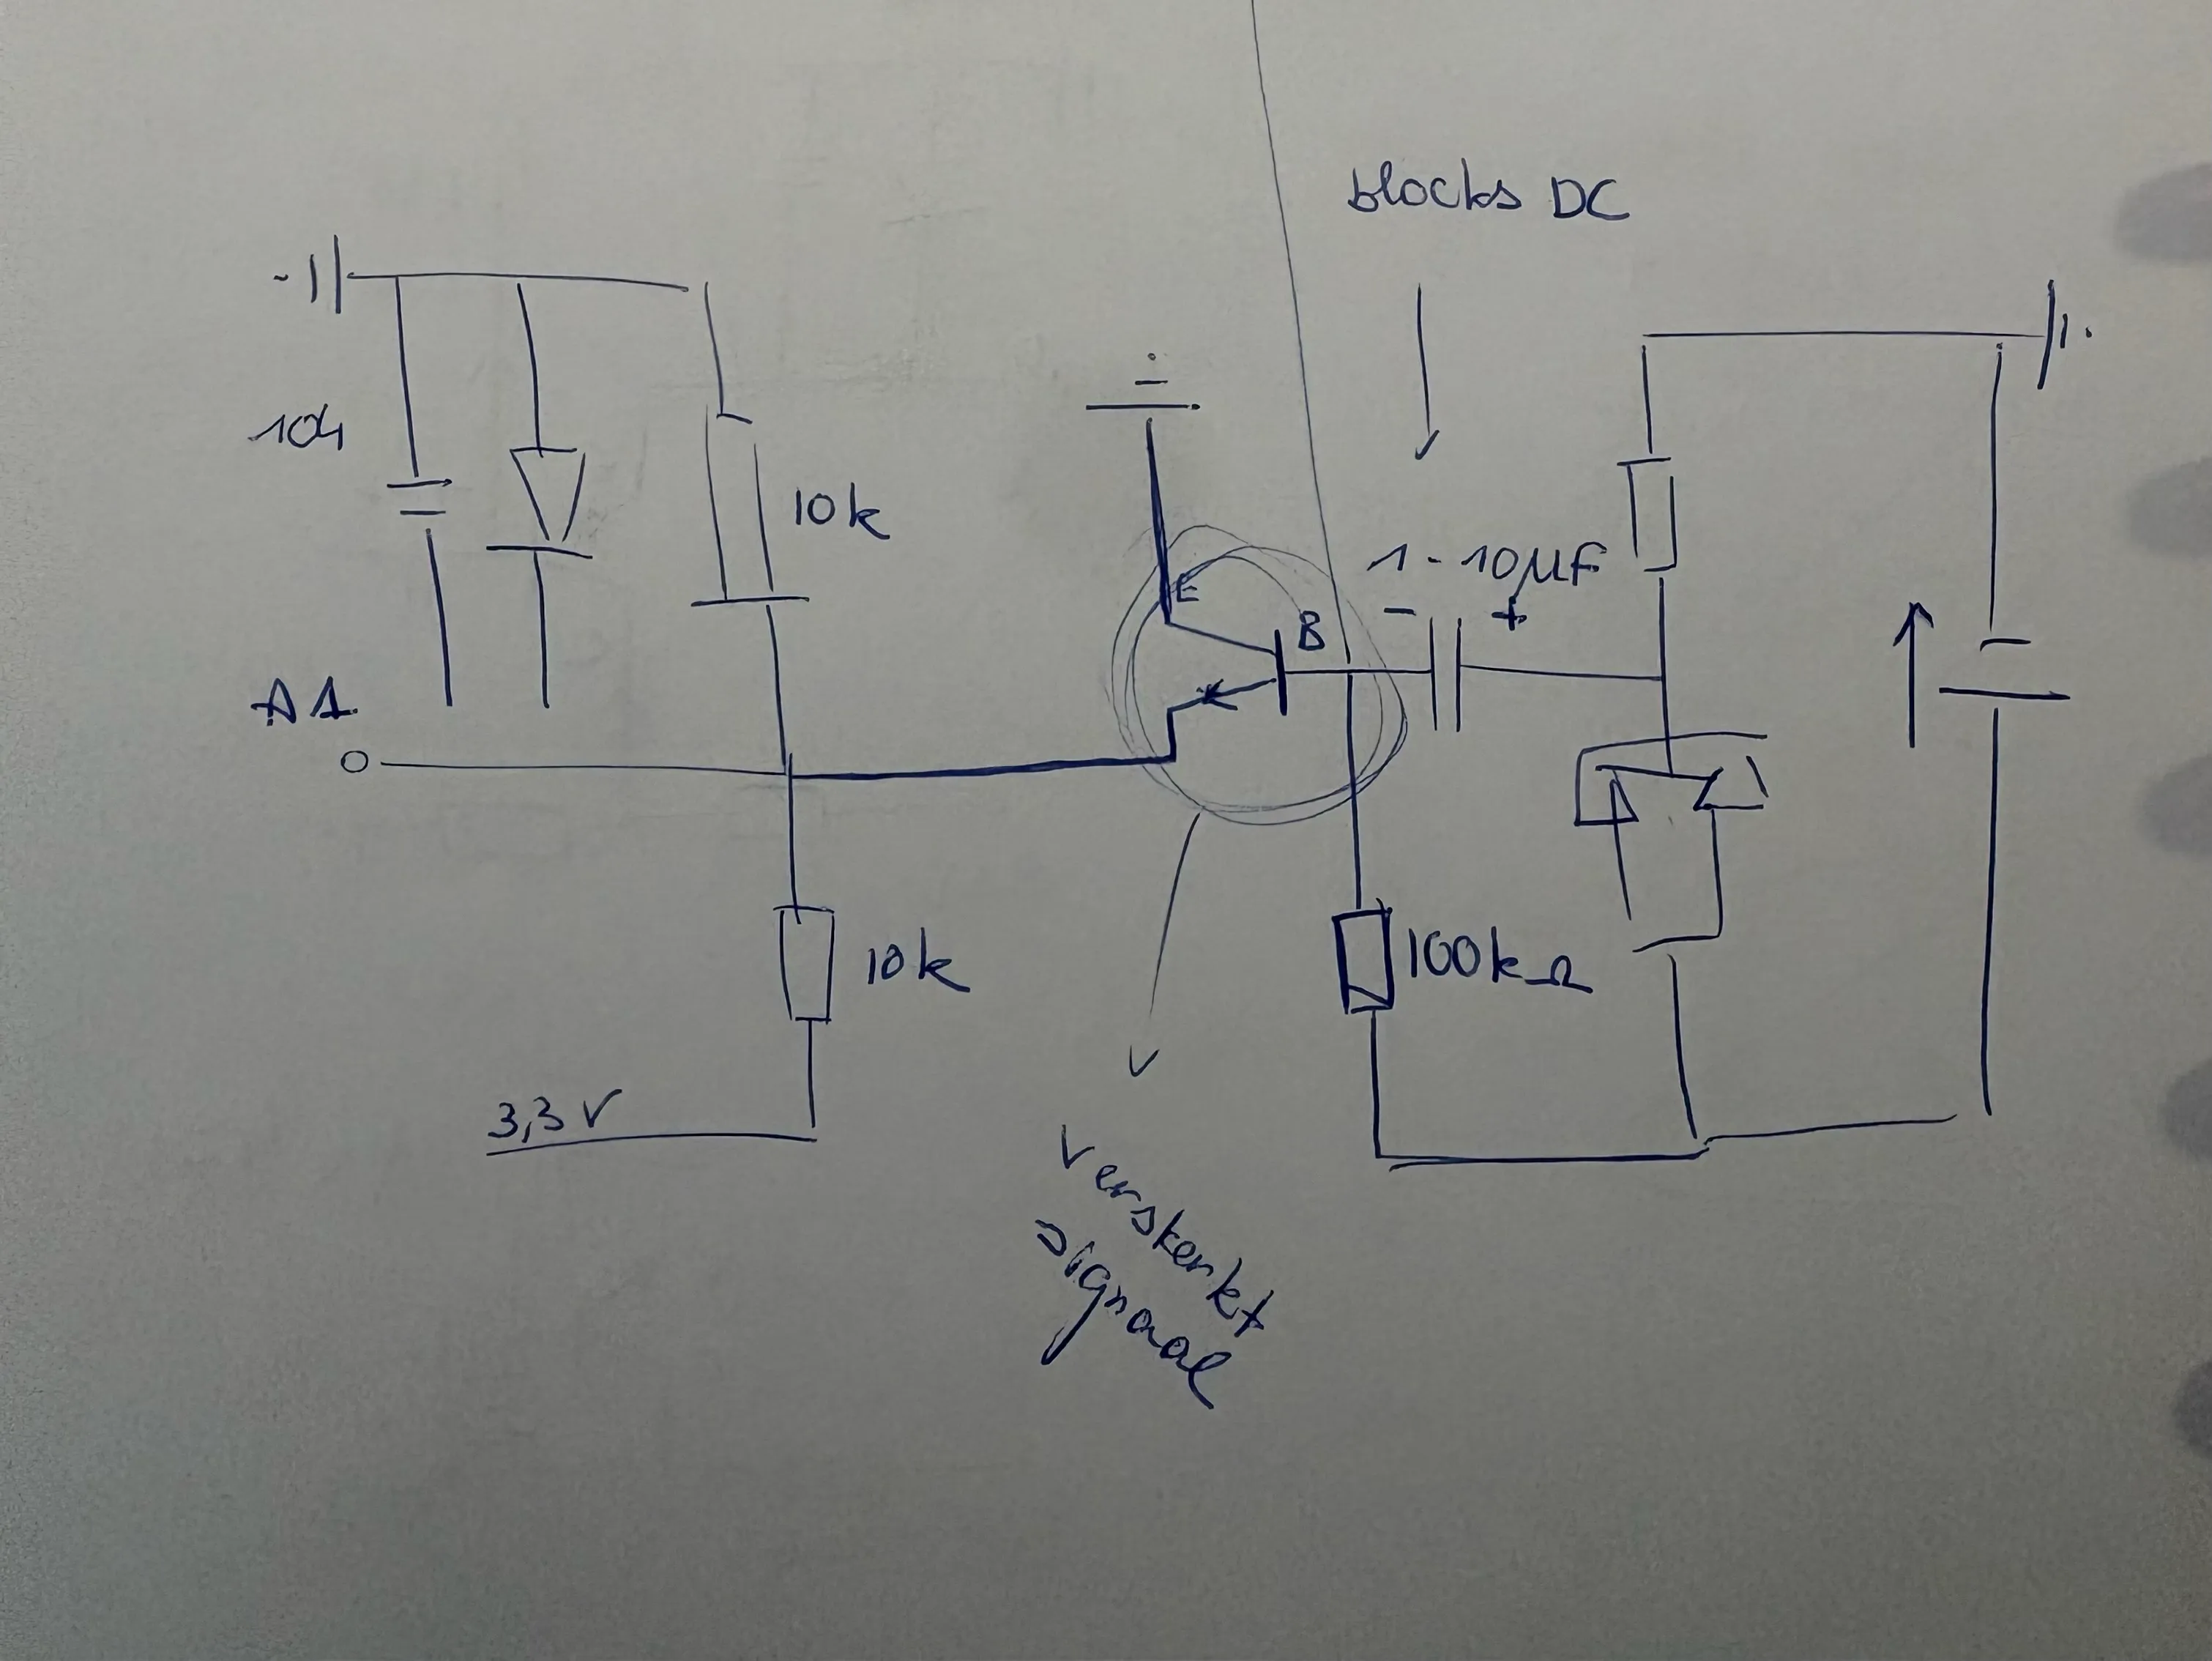 blocks DC
104
10k
E
B
1-10µF
- +
A1
10k
100kΩ
3,3V
Verskerkt
signaal